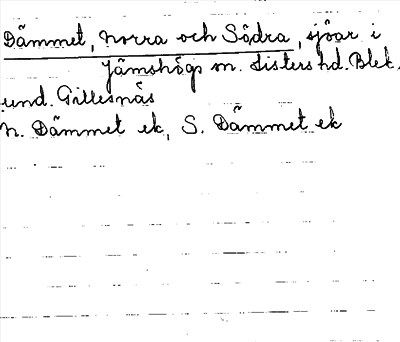 Dämmet, norra och Södra, sjöar i
Jämshögs sn. Listers hd. Blek.
und. Gillesnäs
N. Dämmet ek, S. Dämmet ek